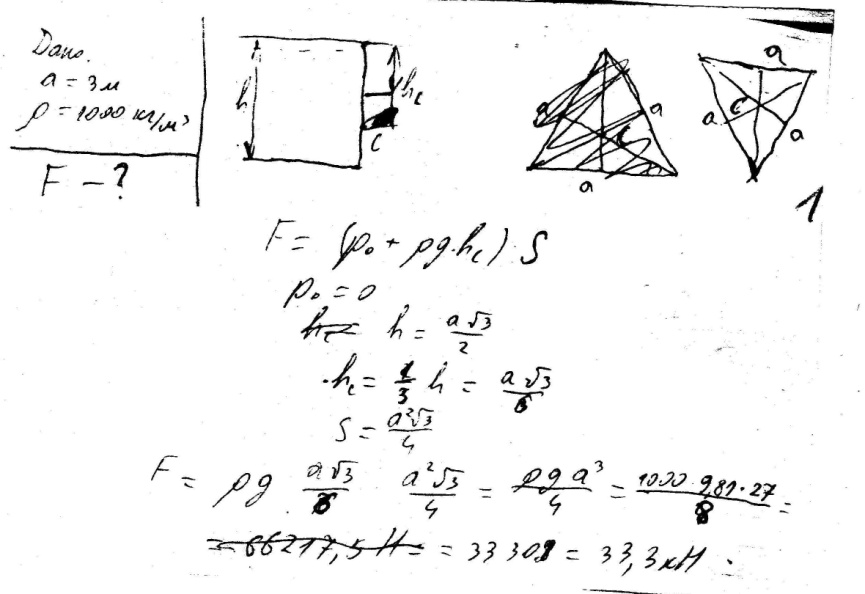 Дано.
a = 3м
ρ = 1000 кг/м³
F - ?
h
h_c
C
a
a
a
C
a
a
a
C
1
F = (p₀ + ρg·h_c)·S
p₀ = 0
h_c = h = a√3/2
h_c = 1/3 h = a√3/6
S = a²√3/4
F = ρg · a√3/6 a²√3/4 = ρga³/4 = 1000·9,81·27/8 =
= 66217,5 Н = = 33308 = 33,3 кН.